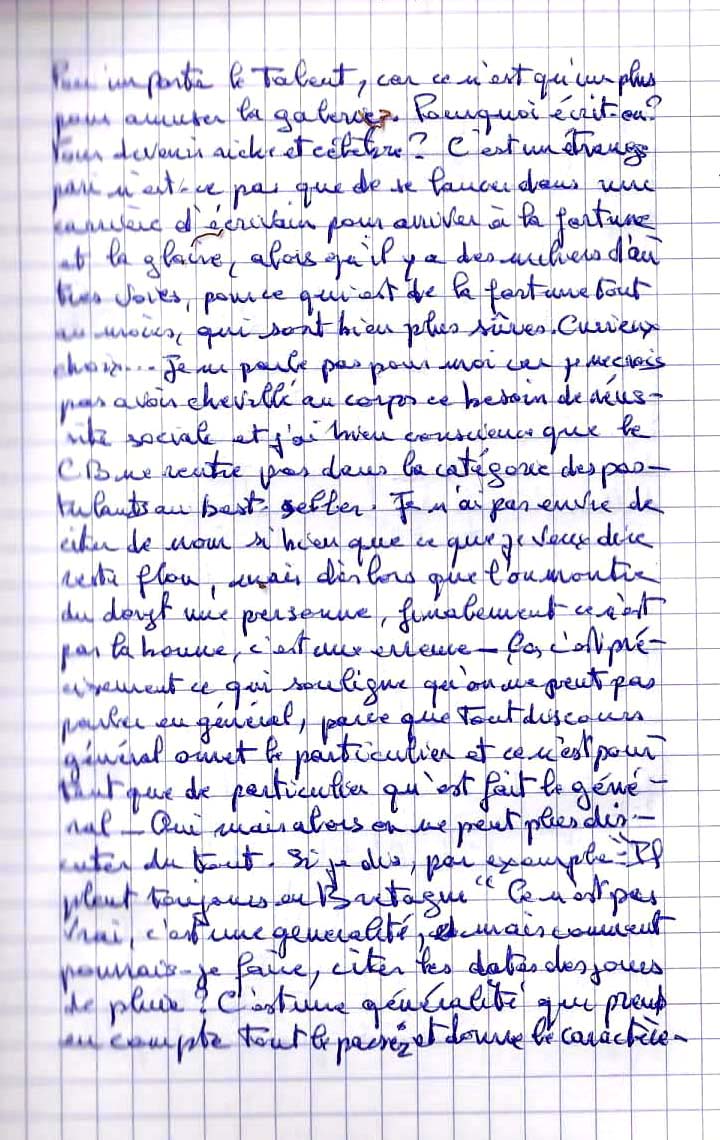 Peu importe le talent, car ce n'est qu'un plus
pour amuser la galerie. Pourquoi écrit-on?
Pour devenir riche et célèbre? C'est un étrange
pari n'est-ce pas que de se lancer dans une
carrière d'écrivain pour arriver à la fortune
et la gloire, alors qu'il y a des milliers d'au
tres voies, pour ce qui est de la fortune tout
au moins, qui sont bien plus sûres. Curieux
choix... Je ne parle pas pour moi car je ne crois
pas avoir chevillé au corps ce besoin de réus-
site sociale et j'ai bien conscience que le
CB ne rentre pas dans la catégorie des pos-
tulants au best-seller. Je n'ai pas envie de
citer de nom si bien que ce que je veux dire
reste flou, mais dès lors que l'on montre
du doigt une personne, finalement ce n'est
pas la bonne, c'est une erreur - Ça, c'est pré-
cisement ce qui souligne qu'on ne peut pas
parler en général, parce que tout discours
général omet le particulier et ce n'est pour
tant que de particulier qu'est fait le géné-
ral - Oui mais alors on ne peut plus dis-
cuter du tout. Si je dis, par exemple "Il
pleut toujours en Bretagne" Ce n'est pas
vrai, c'est une generalité, mais comment
pourrais-je faire, citer les dates des jours
de pluie? C'est une généralité qui prend
en compte tout le passé et donne le caractère-